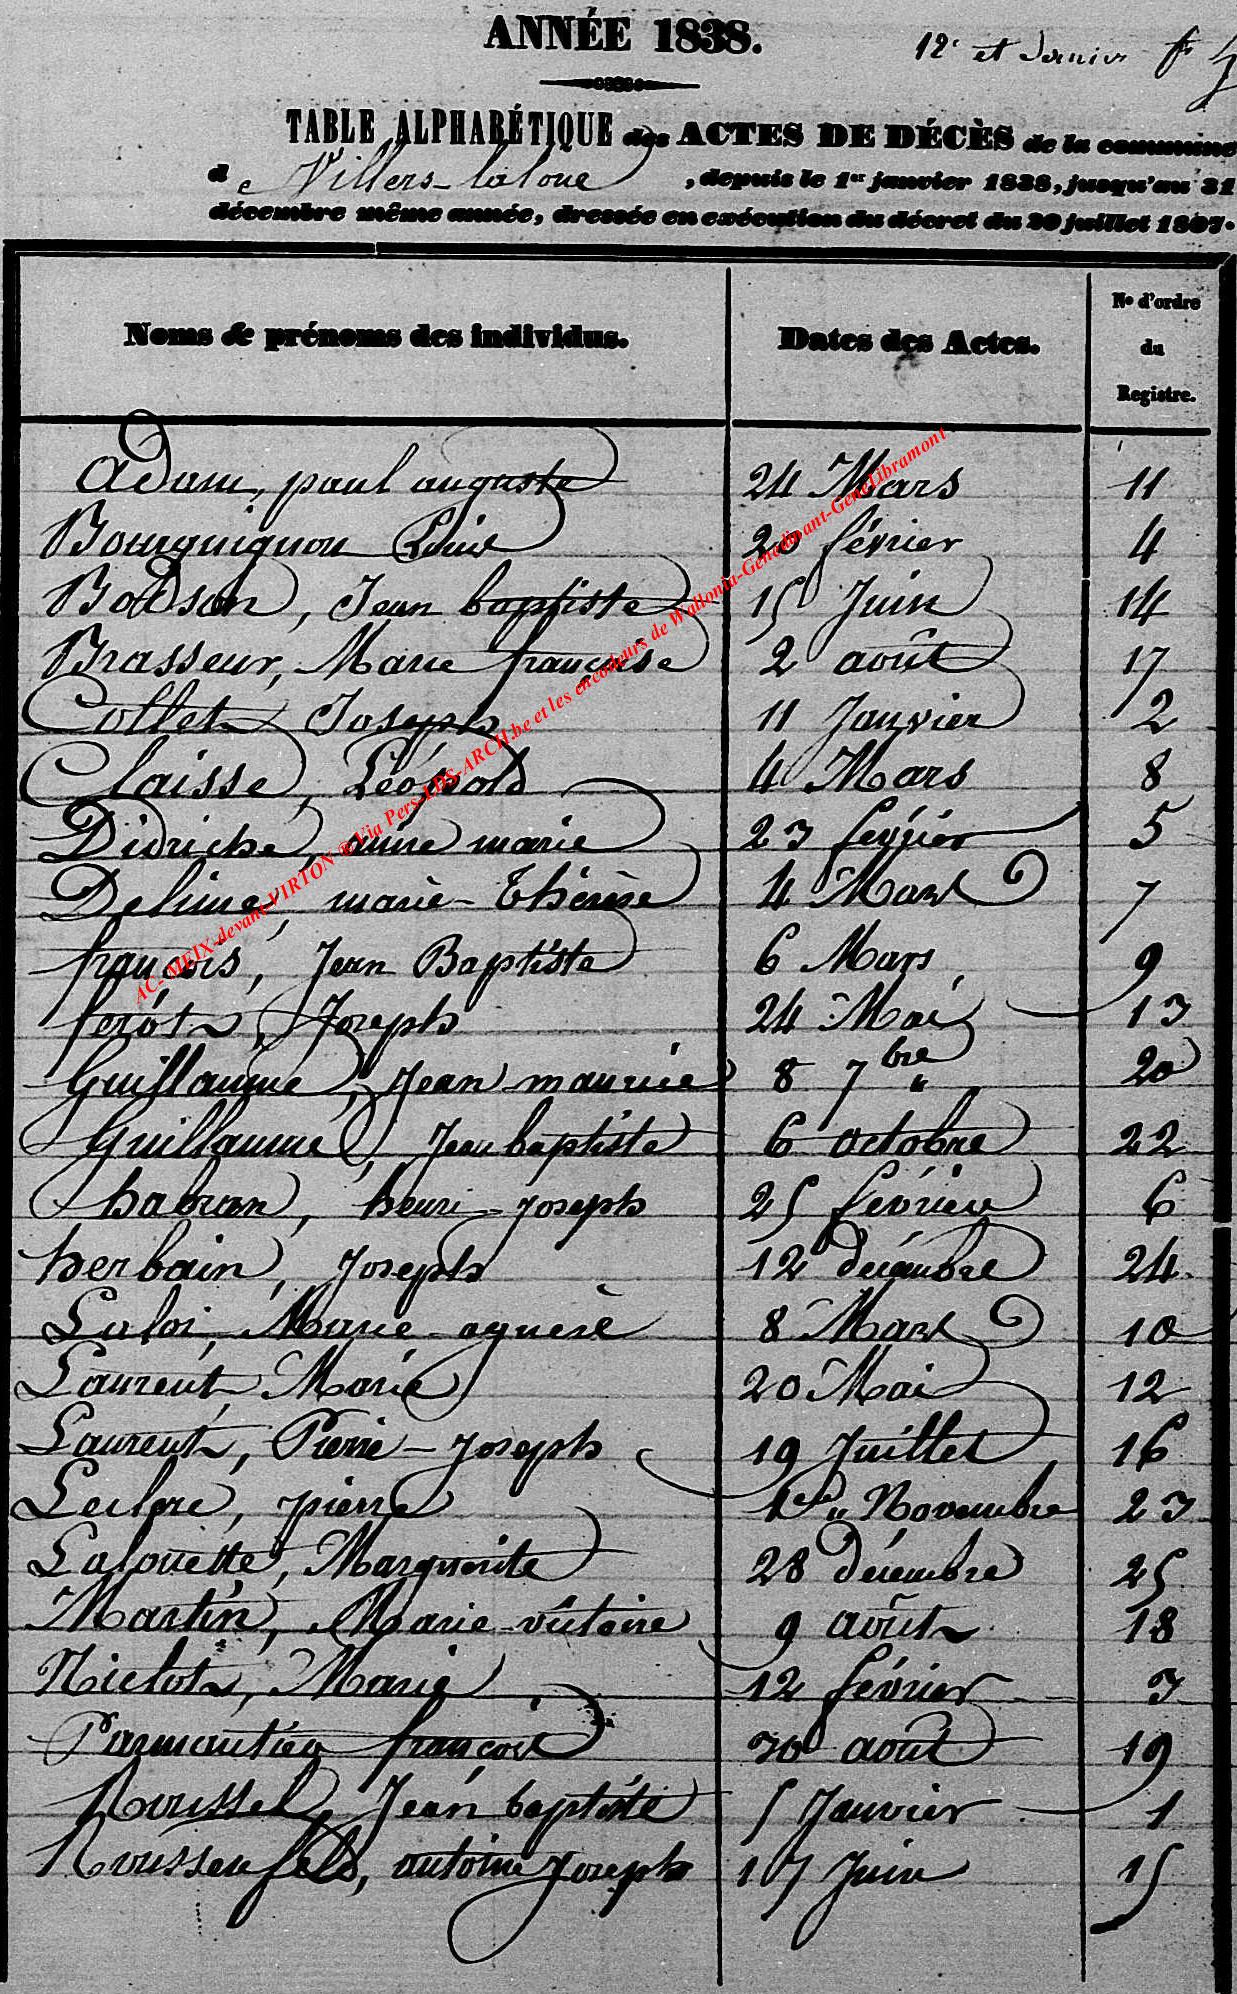 ANNÉE 1838.
12e et dernier
TABLE ALPHABÉTIQUE des ACTES DE DÉCÈS de la commune
de Villers-laloue, depuis le 1er janvier 1838, jusqu'au 31
décembre même année, dressée en exécution du décret du 20 juillet 1807.
Noms & prénoms des individus. Dates des Actes. No d'ordre du Registre.
Adam, paul auguste 24 Mars 11
Bourguignon Louis 20 février 4
Bodson, Jean baptiste 15 Juin 14
Brasseur, Marie françoise 2 août 17
Collet, Joseph 11 Janvier 2
Claisse, Léopold 4 Mars 8
Didriche, anne marie 23 février 5
Delime, marie-thérèse 4 Mars 7
françois, Jean Baptiste 6 Mars 9
ferót, Joseph 24 Mai 13
Guillaume, Jean maurice 8 7bre 20
Guillaume, Jean baptiste 6 octobre 22
habran, henri-joseph 25 février 6
herbain, Joseph 12 décembre 24
Laloi, Marie-agnese 8 Mars 10
Laurent, Marie 20 Mai 12
Laurent, Pierre-Joseph 19 Juillet 16
Leclere, pierre 1er Novembre 23
Lalouette, Marguerite 28 décembre 25
Martin, Marie-victoire 9 août 18
Niclot, Marie 12 février 3
Parmantier françois 30 août 19
Roussel, Jean baptiste 5 Janvier 1
Roussenfeld, antoine Joseph 17 Juin 15
AC-MEIX-devant-VIRTON Via Pers-LDS-ARCH.be et les encodeurs de Wallonia-Genedinant-GeneLibramont